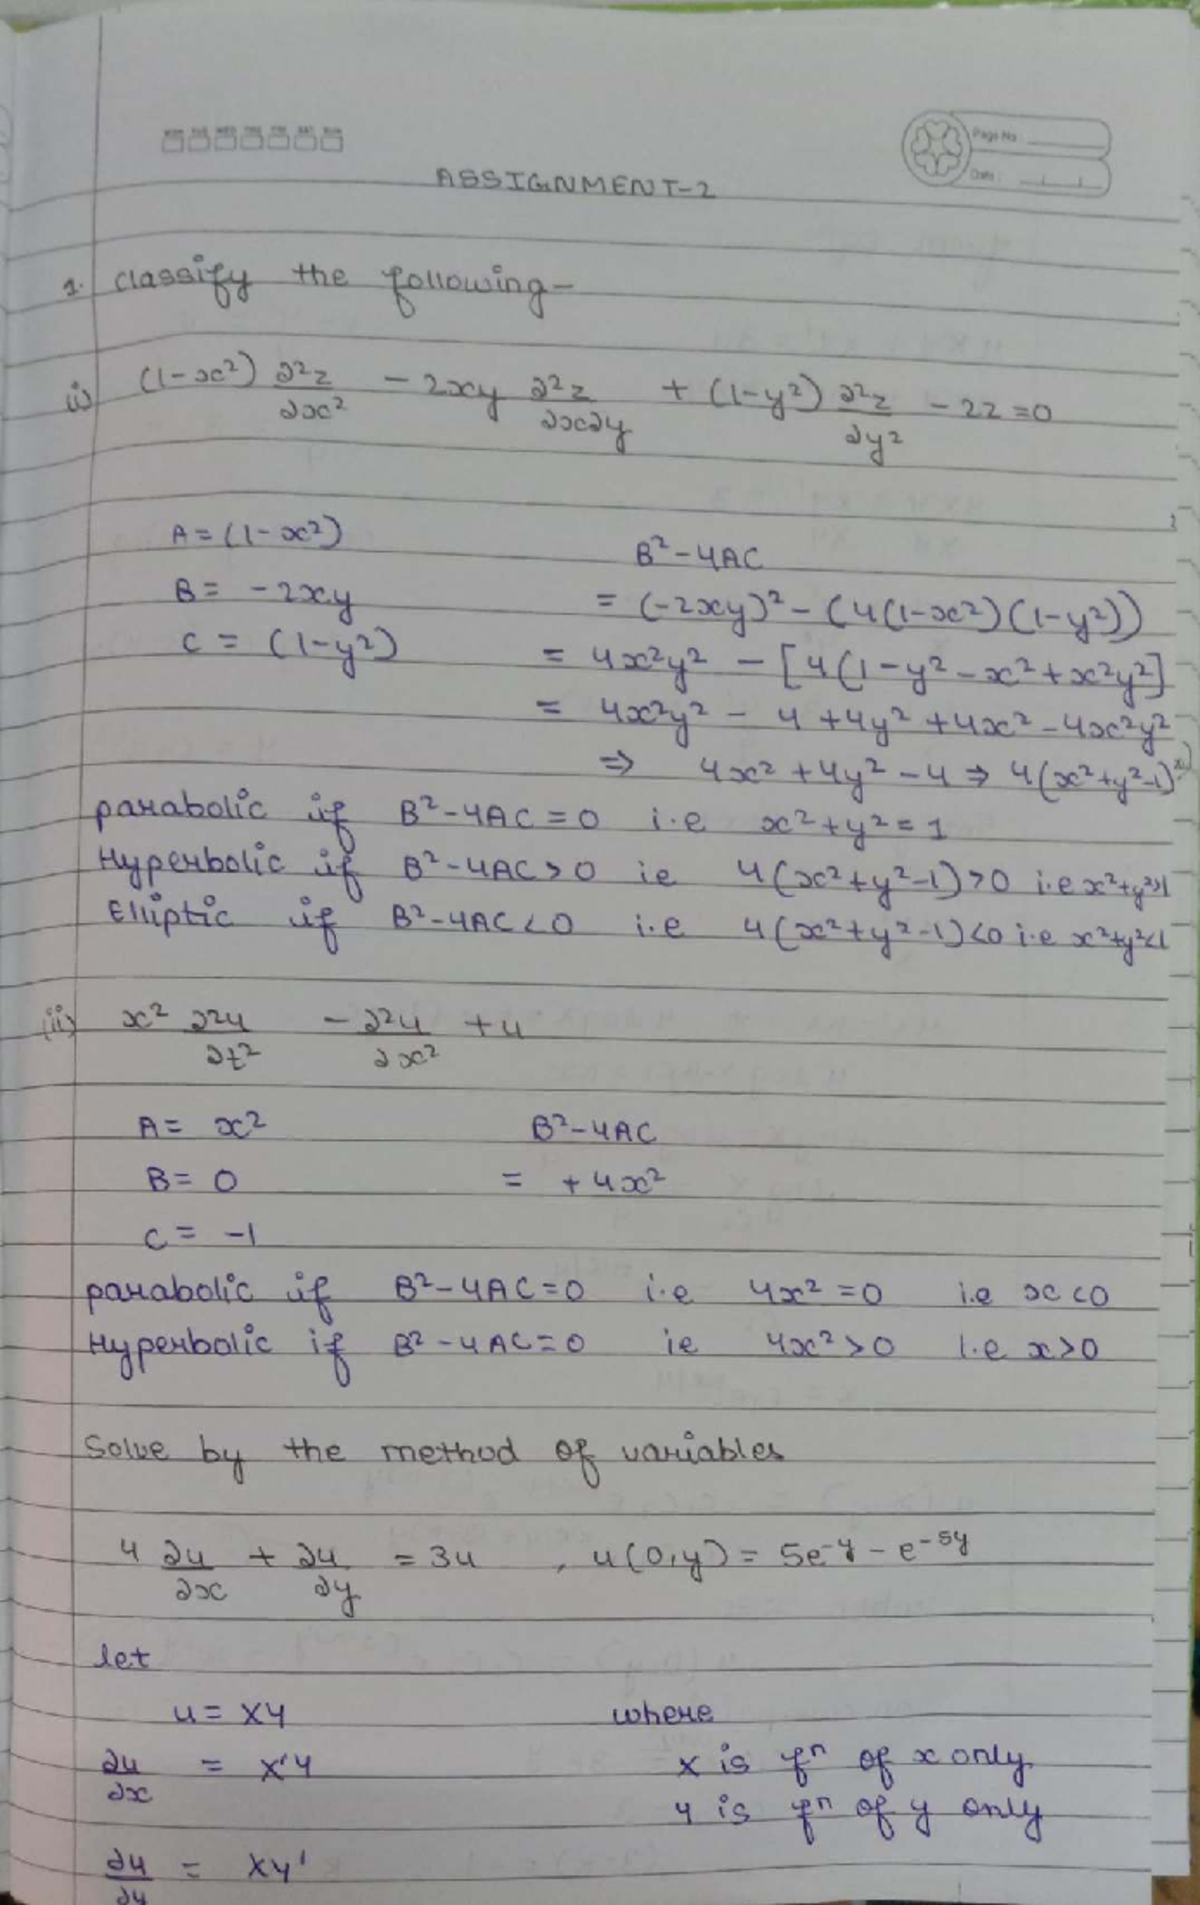 Page No.
Date:
ASSIGNMENT-2
1. classify the following-
i) (1-x²) ∂²z/∂x² - 2xy ∂²z/∂x∂y + (1-y²) ∂²z/∂y² - 2z = 0
A = (1-x²)
B²-4AC
B = -2xy
= (-2xy)² - (4(1-x²)(1-y²))
C = (1-y²)
= 4x²y² - [4(1-y²-x²+x²y²]
= 4x²y² - 4 + 4y² + 4x² - 4x²y²
⇒ 4x² + 4y² - 4 ⇒ 4(x²+y²-1)
parabolic if B²-4AC = 0 i.e x²+y² = 1
Hyperbolic if B²-4AC > 0 ie 4(x²+y²-1)>0 i.e x²+y²>1
Elliptic if B²-4AC < 0 i.e 4(x²+y²-1)<0 i.e x²+y²<1
(ii) x² ∂²u/∂t² - ∂²u/∂x² + u
A = x²
B²-4AC
B = 0
= +4x²
C = -1
parabolic if B²-4AC = 0 i.e 4x² = 0 i.e x < 0
Hyperbolic if B²-4AC = 0 ie 4x² > 0 i.e x > 0
Solve by the method of variables
4 ∂u/∂x + ∂u/∂y = 3u , u(0,y) = 5e^-y - e^-5y
let
u = XY where
∂u/∂x = X'Y X is fⁿ of x only
Y is fⁿ of y only
∂u/∂y = XY'